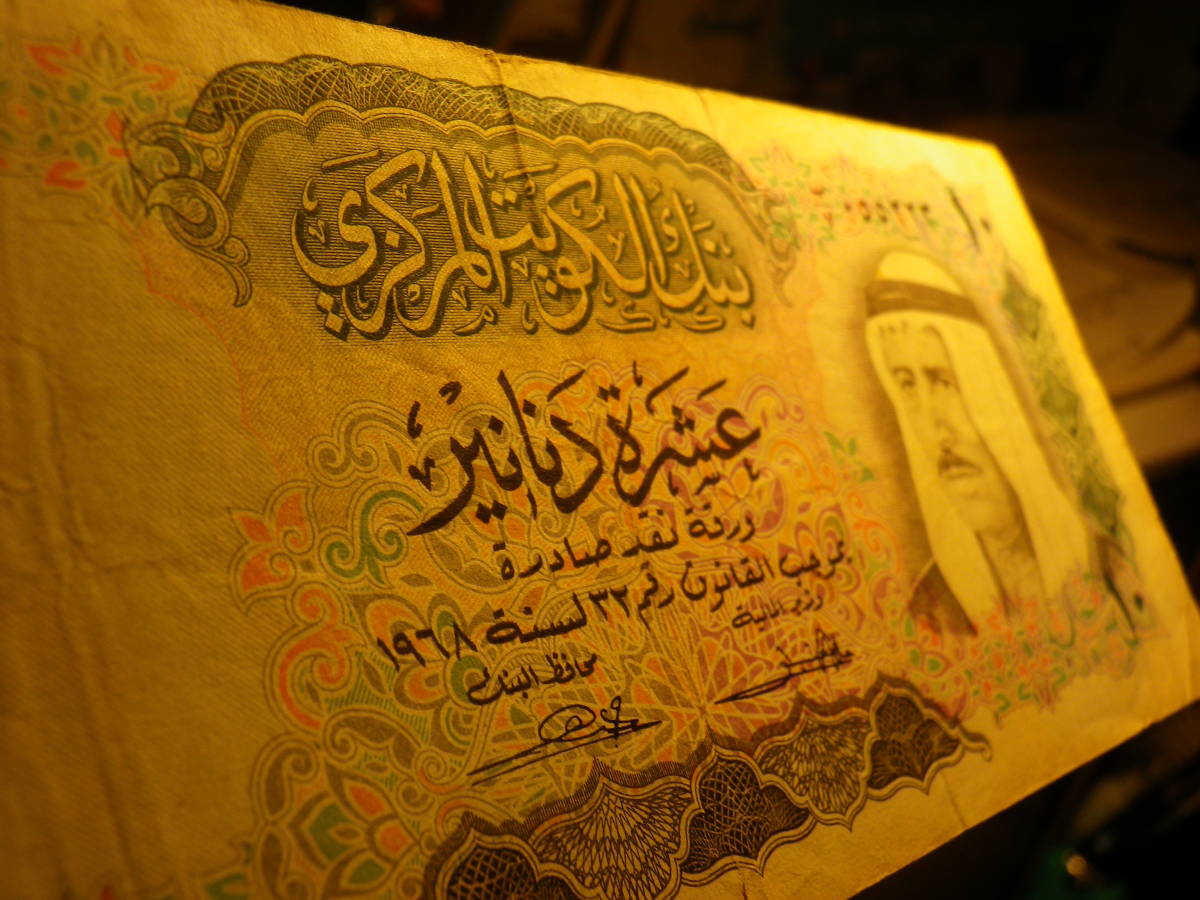 بنك الكويت المركزي
١٠
عشرة دنانير
ورقة نقد صادرة
بموجب القانون رقم ٣٢ لسنة ١٩٦٨
وزير المالية
محافظ البنك
١٠